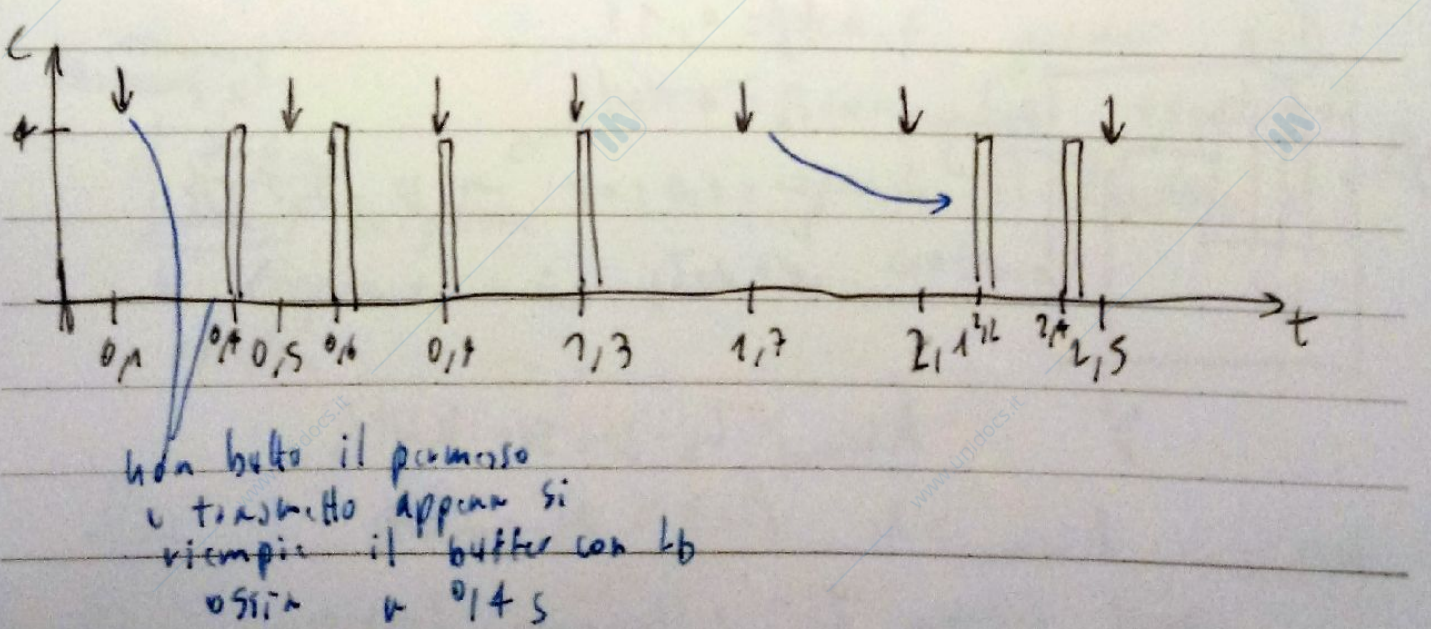 C
4
0,1
0,4
0,5
0,6
0,9
1,3
1,7
2,1
2,2
2,4
2,5
t
non butto il permesso
e trasmetto appena si
riempie il buffer con Lb
ossia a 0,4 s
www.uniudocs.it